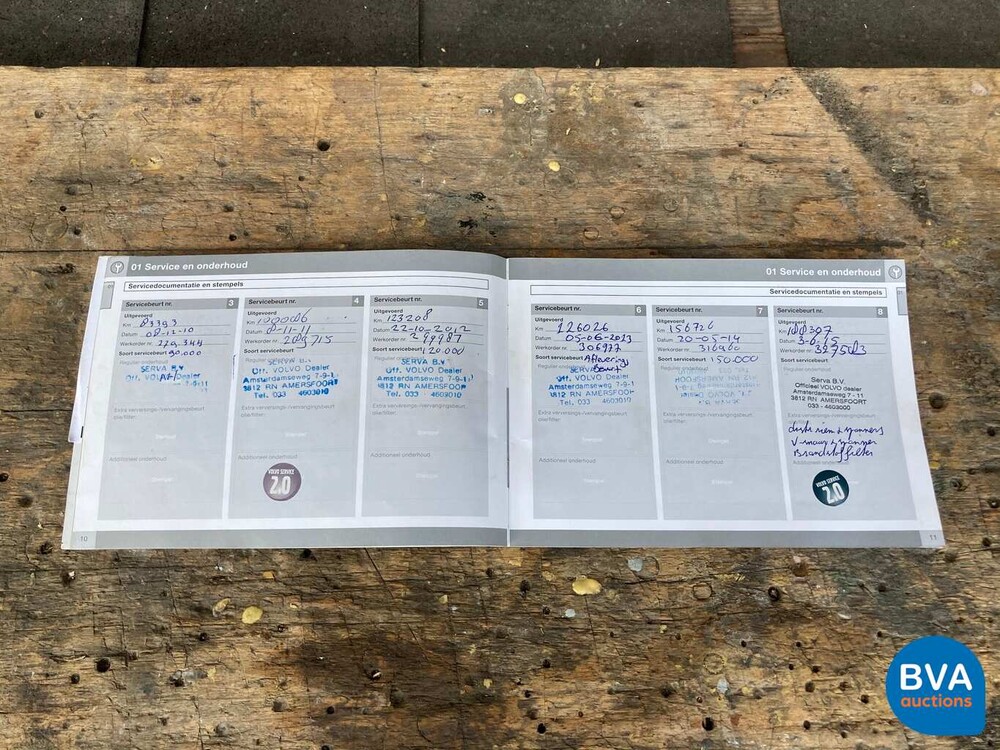 01 Service en onderhoud
Servicedocumentatie en stempels
Servicebeurt nr. 3
Uitgevoerd
Km 83393
Datum 08-12-10
Werkorder nr.
Soort servicebeurt 90.000
Regulier onderhoud
SERVA B.V.
Off. VOLVO
Extra verversings-/vervangingsbeurt
olie/filter:
Stempel
Additioneel onderhoud:
Stempel
10
Servicebeurt nr. 4
Uitgevoerd
Km
Datum 8-11-11
Werkorder nr. 289715
Soort servicebeurt
SERVA B.V.
Off. VOLVO Dealer
Amsterdamseweg 7-9-1
3812 RN AMERSFOORT
Tel. 033 4603010
Extra verversings-/vervangingsbeurt
olie/filter:
Stempel
Additioneel onderhoud:
VOLVO SERVICE
2.0
Servicebeurt nr. 5
Uitgevoerd
Km 123208
Datum 22-10-2012
Werkorder nr. 299987
Soort servicebeurt 120.000
SERVA B.V.
Off. VOLVO Dealer
Amsterdamseweg 7-9-1
3812 RN AMERSFOOR
Tel. 033 - 4603010
Extra verversings-/vervangingsbeurt
olie/filter:
Stempel
Additioneel onderhoud:
Stempel
01 Service en onderhoud
Servicedocumentatie en stempels
Servicebeurt nr. 6
Uitgevoerd
Km 126026
Datum 05-06-2013
Werkorder nr. 306977
Soort servicebeurt Aflevering
Beurt
SERVA
Off. VOLVO Dealer
Amsterdamseweg 7-9-1
3812 RN AMERSFOOR
Tel. 033 - 4603010
Extra verversings-/vervangingsbeurt
olie/filter:
Stempel
Additioneel onderhoud:
Stempel
Servicebeurt nr. 7
Uitgevoerd
Km 156726
Datum 20-05-14
Werkorder nr. 316960
Soort servicebeurt 150.000
Extra verversings-/vervangingsbeurt
olie/filter:
Stempel
Additioneel onderhoud:
Stempel
Servicebeurt nr. 8
Uitgevoerd
Km
Datum 3-6-15
Werkorder nr.
Soort servicebeurt
Regulier onderhoud
Serva B.V.
Officieel VOLVO dealer
Amsterdamseweg 7 - 11
3812 RN AMERSFOORT
033 - 4603000
Extra verversings-/vervangingsbeurt
olie/filter:
distr riem & spanners
V-snaar & spanner
Brandstoffilter
Additioneel onderhoud:
VOLVO SERVICE
2.0
11
BVA
auctions